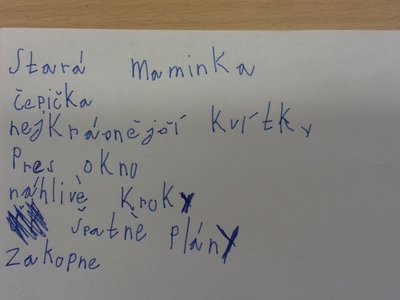 Stará maminka
čepička
nejkrásnější kvítky
Pres okno
náhlivě kroky
Špatně plány
zakopne